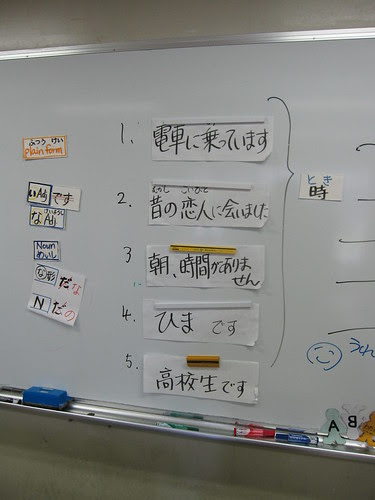 ふつう けい
plain form
いAdj です
なAdj
Noun
めいし
な形 だな
N だの
1. 電車に乗っています
2. 昔の恋人に会いました
3 朝、時間がありま
せん
4. ひま です
5. 高校生です
とき
時
A B